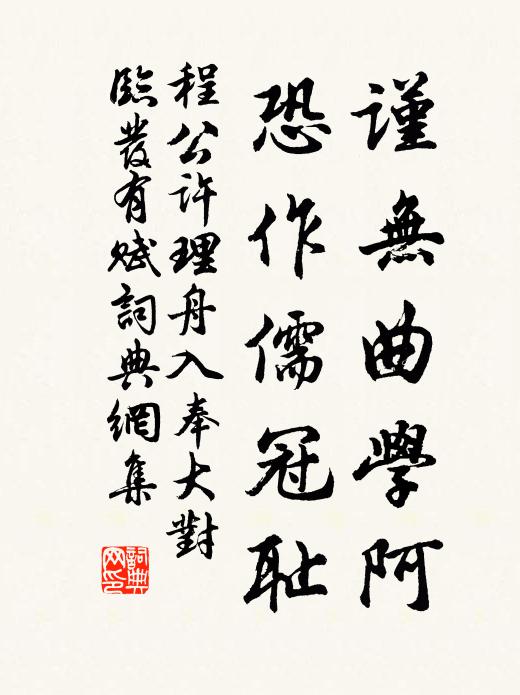 謹無曲學阿
恐作儒冠耻
程公許理舟入奉大對
臨發有賦詞典網集
詞典
网印